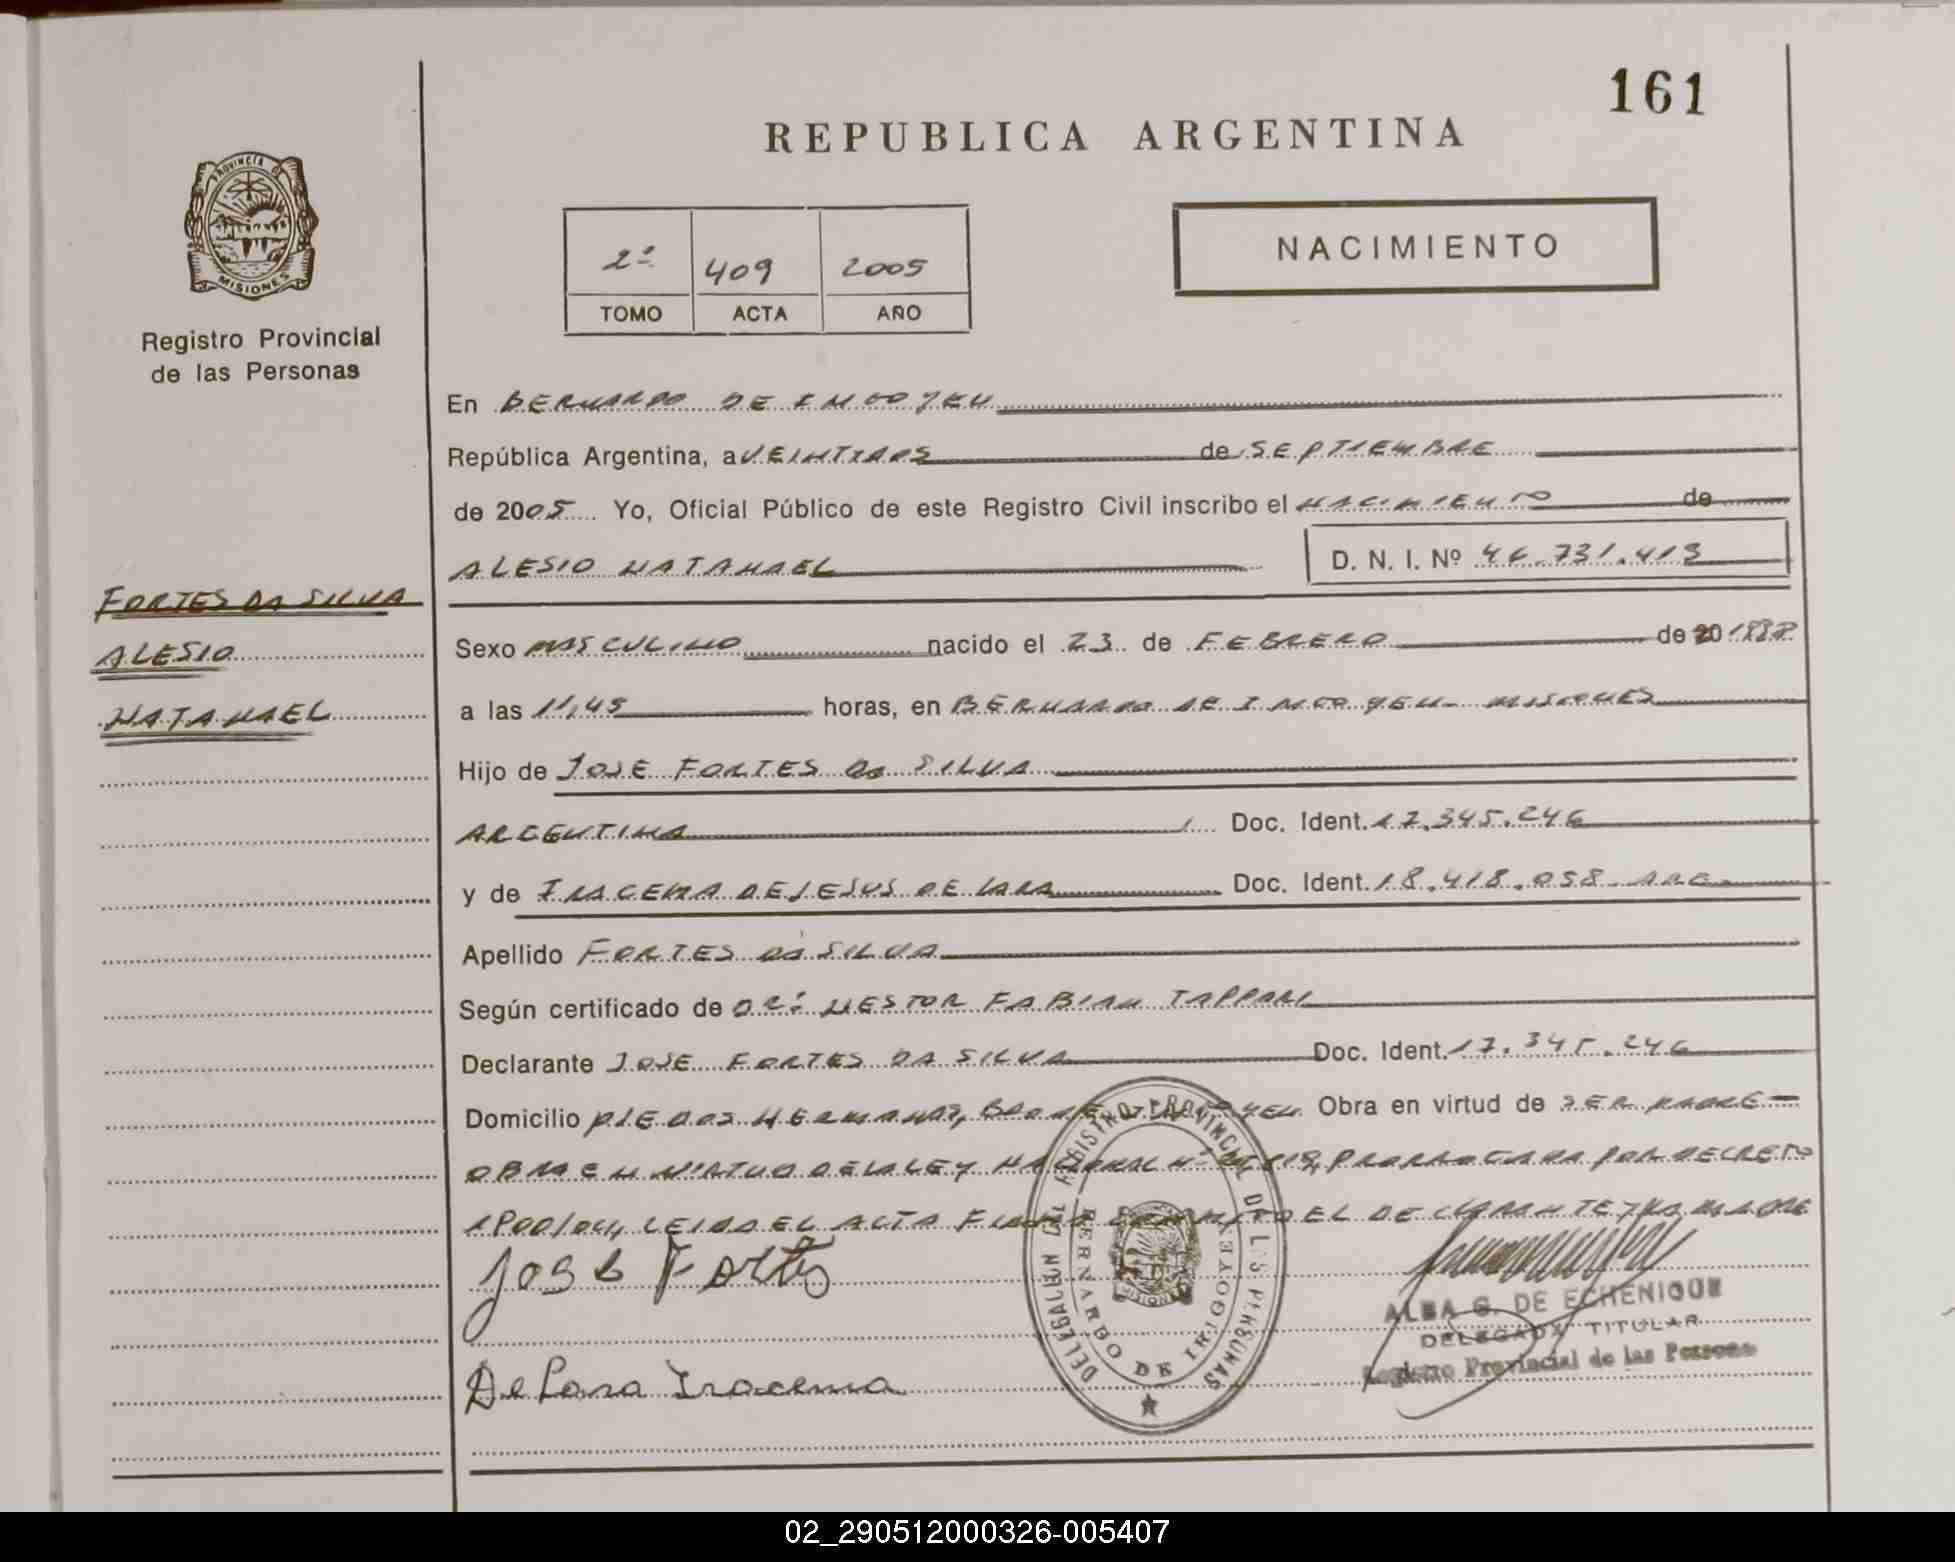 161
REPUBLICA ARGENTINA
PROVINCIA DE
MISIONES
Registro Provincial
de las Personas
2º 409 2005
TOMO ACTA AÑO
NACIMIENTO
En BERNARDO DE IRIGOYEN
República Argentina, a VEINTIDOS de SEPTIEMBRE
de 2005 Yo, Oficial Público de este Registro Civil inscribo el NACIMIENTO de
ALESIO NATANAEL D. N. I. Nº 46.731.413
FORTES DA SILVA
ALESIO
NATANAEL
Sexo MASCULINO nacido el 23 de FEBRERO de 20
a las 11,45 horas, en BERNARDO DE IRIGOYEN - MISIONES
Hijo de JOSE FORTES DA SILVA
ARGENTINA Doc. Ident. 17.345.246
y de IRACEMA DE JESUS DE LARA Doc. Ident. 18.418.058 ARG
Apellido FORTES DA SILVA
Según certificado de DR. NESTOR FABIAN TAPPARI
Declarante JOSE FORTES DA SILVA Doc. Ident. 17.345.246
Domicilio PIE DOS HERMANAS, Obra en virtud de SER PADRE
OBRA EN VIRTUD DE LA LEY NACIONAL Nº PRORROGADA POR DECRETO
LEIDA EL ACTA FIRMA CONMIGO EL DECLARANTE Y LA MADRE
Jose Fortes
De Lara Iracema
DELEGACION DEL REGISTRO PROVINCIAL DE LAS PERSONAS
BERNARDO DE IRIGOYEN
MISIONES
ALBA G. DE ECHENIQUE
DELEGADA TITULAR
Registro Provincial de las Personas
02_290512000326-005407